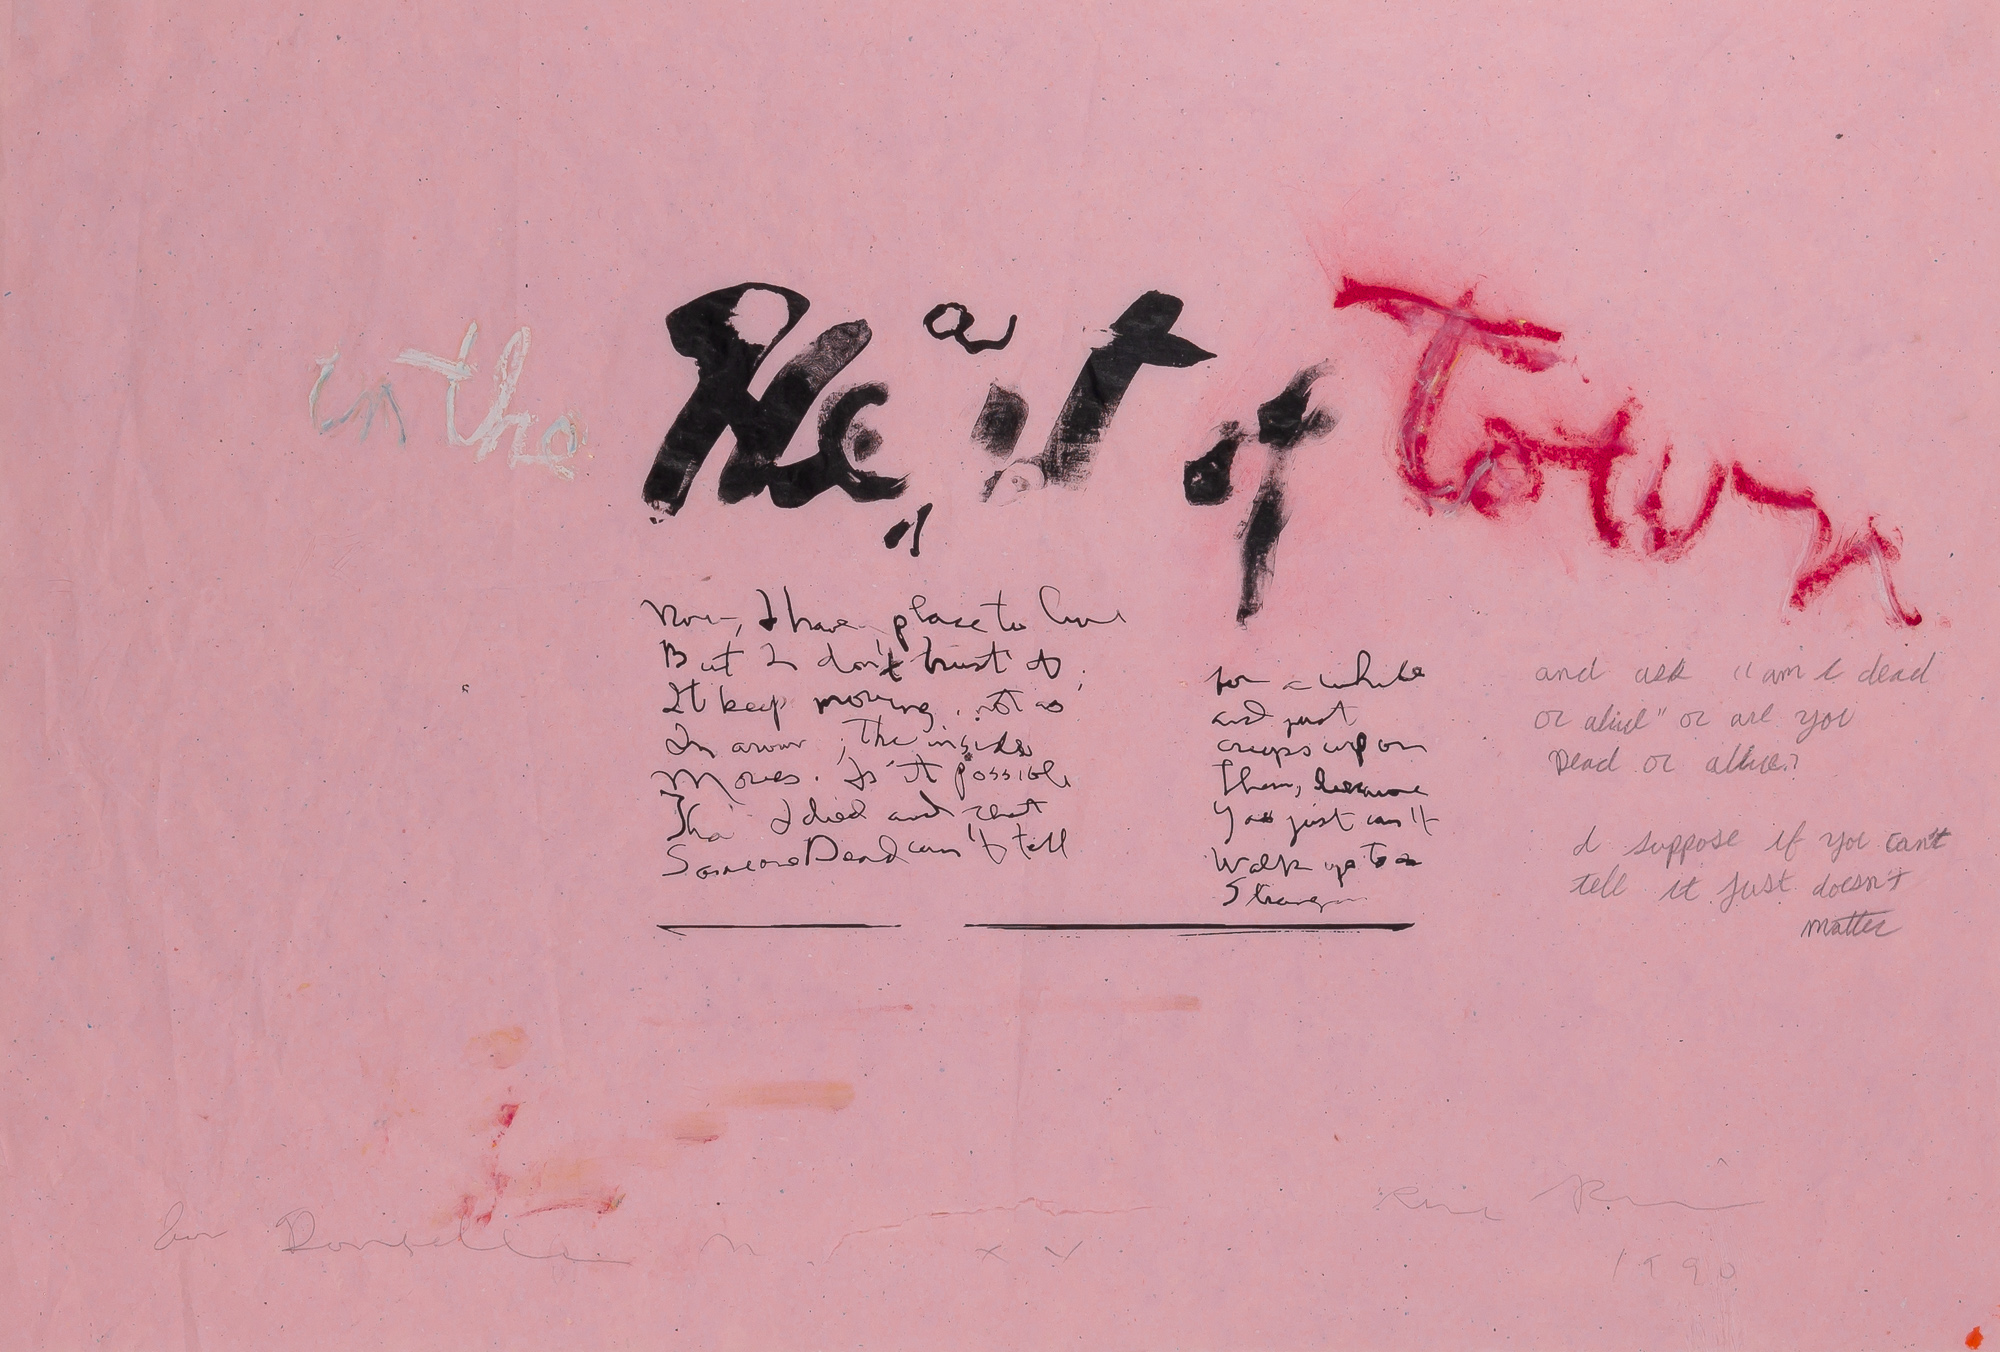 in the Heart of Town
Now, I have place to live
But I don't trust it,
It keep moving, not as
In, The inside
Moves. Is it possible
Tha I died and that
Someone Dead can't tell
for a while
and just
creeps up on
Them, because
You just can't
Walk up to a
Stranger
and ask "am I dead
or alive" or are you
Dead or alive?
I suppose if you can't
tell it just doesn't
matter
for
1990